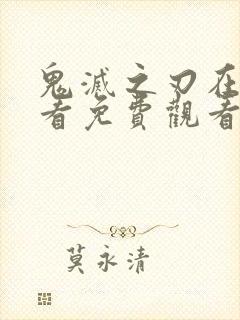 鬼滅之刃在
看免費觀看
莫永清